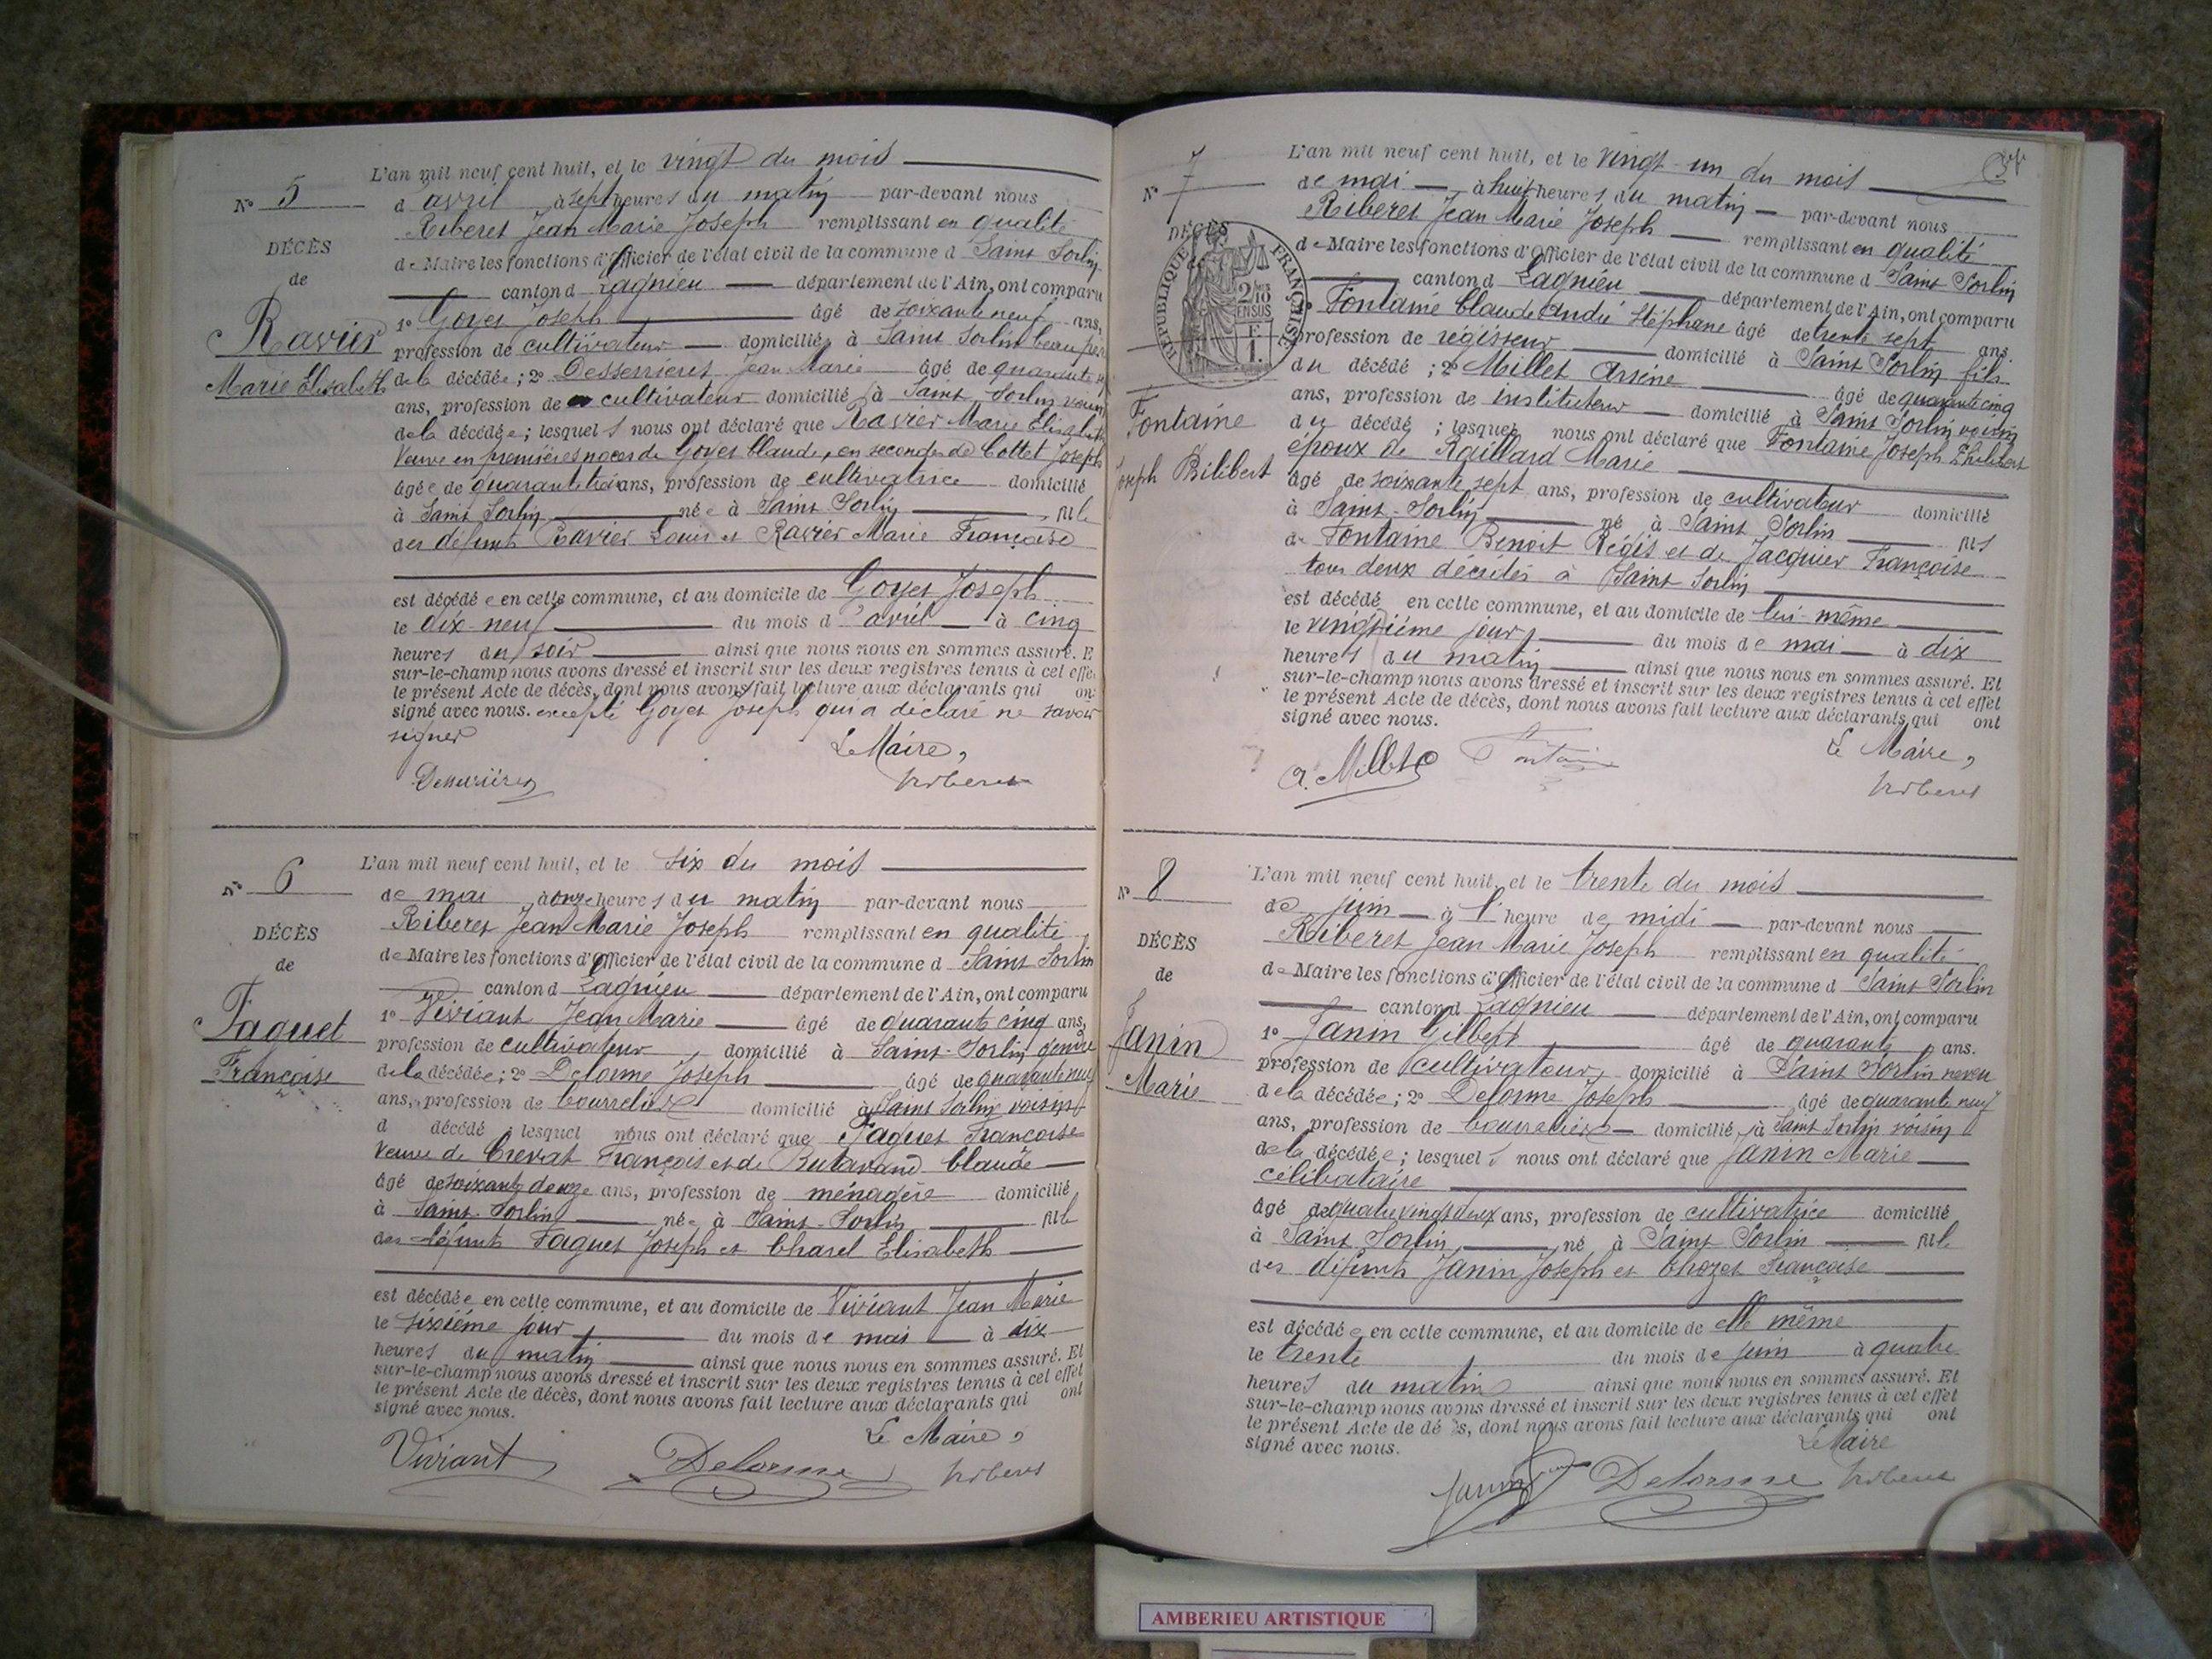 L'an mil neuf cent huit, et le vingt du mois
N° 5
d avril à sept heures du matin par-devant nous
Riberet Jean Marie Joseph remplissant en qualité
DÉCÈS
de Maire les fonctions d'Officier de l'état civil de la commune d Saint Sorlin
de
canton d Lagnieu département de l'Ain, ont comparu
1° Goyet Joseph âgé de soixante neuf ans,
Ravier
profession de cultivateur domicilié à Saint Sorlin beau père
Marie Elisabeth
de la décédée; 2° Desserrieres Jean Marie âgé de quarante
ans, profession de cultivateur domicilié à Saint Sorlin voisin
de la décédée; lesquels nous ont déclaré que Ravier Marie Elisabeth
Veuve en premières noces de Goyet Claude, en secondes de Cottet Joseph
âgée de quarante trois ans, profession de cultivatrice domicilié
à Saint Sorlin née à Saint Sorlin fille
des défunts Ravier Louis et Ravier Marie Françoise
est décédée en cette commune, et au domicile de Goyet Joseph
le dix-neuf du mois d'avril à cinq
heures du soir ainsi que nous nous en sommes assuré. E
sur-le-champ nous avons dressé et inscrit sur les deux registres tenus à cet effe
le présent Acte de décès, dont nous avons fait lecture aux déclarants qui on
signé avec nous. excepté Goyet Joseph qui a déclaré ne savoir
signer
Le Maire,
Desserrières Riberet
L'an mil neuf cent huit, et le six du mois
N° 6
de mai à onze heures du matin par-devant nous
Riberet Jean Marie Joseph remplissant en qualité
DÉCÈS
de Maire les fonctions d'Officier de l'état civil de la commune d Saint Sorlin
de
canton d Lagnieu département de l'Ain, ont comparu
1° Viviant Jean Marie âgé de quarante cinq ans,
Faguet
profession de cultivateur domicilié à Saint-Sorlin gendre
Françoise
de la décédée; 2° Delorme Joseph âgé de quarante neuf
ans, profession de bourrelier domicilié à Saint Sorlin voisin
d décédé lesquel nous ont déclaré que Faguet Françoise
Veuve de Crevat François et de Butavand Claude
âgé de soixante douze ans, profession de ménagère domicilié
à Saint-Sorlin née à Saint-Sorlin fille
des défunts Faguet Joseph et Charel Elisabeth
est décédée en cette commune, et au domicile de Viviant Jean Marie
le sixième jour du mois de mai à dix
heures du matin ainsi que nous nous en sommes assuré. Et
sur-le-champ nous avons dressé et inscrit sur les deux registres tenus à cet effet
le présent Acte de décès, dont nous avons fait lecture aux déclarants qui ont
signé avec nous.
Le Maire,
Viviant Delorme Riberet
L'an mil neuf cent huit, et le vingt-un du mois
N° 7
de mai à huit heures du matin par-devant nous
Riberet Jean Marie Joseph remplissant en qualité
DÉCÈS
de Maire les fonctions d'Officier de l'état civil de la commune d Saint Sorlin
RÉPUBLIQUE FRANÇAISE
canton d Lagnieu département de l'Ain, ont comparu
2/10 EN SUS
1° Fontaine Claude André Stéphane âgé de trente sept ans.
F. 1.
profession de régisseur domicilié à Saint Sorlin fils
du décédé; 2° Millet Arsène âgé de quarante cinq
ans, profession de instituteur domicilié à Saint Sorlin voisin
Fontaine
du décédé; lesquels nous ont déclaré que Fontaine Joseph Philibert
époux de Raillard Marie
Joseph Bilibert
âgé de soixante sept ans, profession de cultivateur domicilié
à Saint-Sorlin né à Saint Sorlin fils
de Fontaine Benoit Régis et de Jacquier Françoise
tous deux décédés à Saint Sorlin
est décédé en cette commune, et au domicile de lui-même
le vingtième jour du mois de mai à dix
heures du matin ainsi que nous nous en sommes assuré. Et
sur-le-champ nous avons dressé et inscrit sur les deux registres tenus à cet effet
le présent Acte de décès, dont nous avons fait lecture aux déclarants qui ont
signé avec nous.
Le Maire,
A. Millet Fontaine Riberet
L'an mil neuf cent huit, et le trente du mois
N° 8
de juin à l'heure de midi par-devant nous
Riberet Jean Marie Joseph remplissant en qualité
DÉCÈS
de Maire les fonctions d'Officier de l'état civil de la commune d Saint Sorlin
de
canton d Lagnieu département de l'Ain, ont comparu
1° Janin Gilbert âgé de quarante ans.
Janin
profession de cultivateur domicilié à Saint Sorlin neveu
Marie
de la décédée; 2° Delorme Joseph âgé de quarante neuf
ans, profession de bourrelier domicilié à Saint Sorlin voisin
de la décédée; lesquels nous ont déclaré que Janin Marie
célibataire
âgé de quatre vingt deux ans, profession de cultivatrice domicilié
à Saint Sorlin né à Saint Sorlin fille
des défunts Janin Joseph et Chozet Françoise
est décédée en cette commune, et au domicile de elle même
le trente du mois de juin à quatre
heures du matin ainsi que nous nous en sommes assuré. Et
sur-le-champ nous avons dressé et inscrit sur les deux registres tenus à cet effet
le présent Acte de dé ès, dont nous avons fait lecture aux déclarants qui ont
signé avec nous.
Le Maire
Janin Delorme Riberet
AMBERIEU ARTISTIQUE